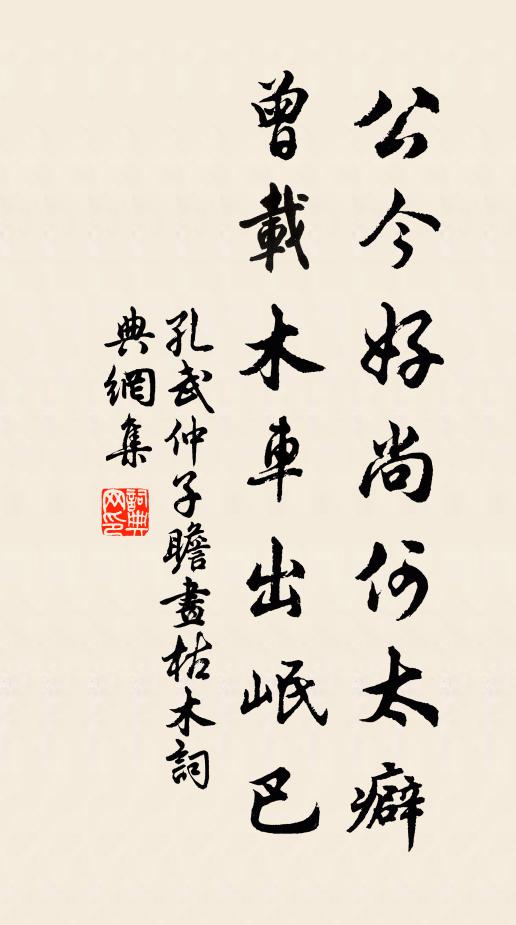 公今好尚何太癖
曾載木車出岷巴
孔武仲子瞻畫枯木詞
典網集
詞典网印